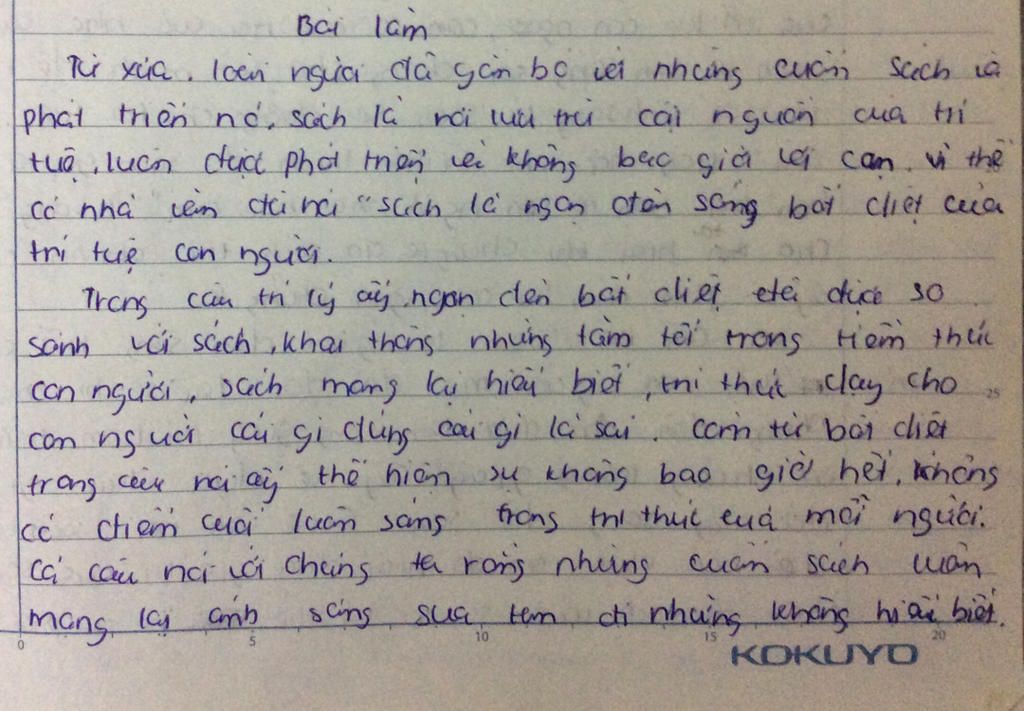 Bài làm
Từ xưa, loài người đã gắn bó với những cuốn sách và
phát triển nó, sách là nơi lưu trữ cội nguồn của trí
tuệ, luôn được phát triển và không bao giờ vơi cạn. vì thế
có nhà văn đã nói "sách là ngọn đèn sáng bất diệt của
trí tuệ con người.
Trong câu trí lý ấy, ngọn đèn bất diệt đã được so
sánh với sách, khai thông những tăm tối trong tiềm thức
con người, sách mang lại hiểu biết, tri thức dạy cho
con người cái gì đúng cái gì là sai. Cụm từ bất diệt
trong câu nói ấy thể hiện sự không bao giờ hết, không
có điểm cuối luôn sáng trong tri thức của mỗi người.
Cả câu nói với chúng ta rằng những cuốn sách luôn
mang lại ánh sáng xua tan đi những không hiểu biết.
0 5 10 15 20
25
KOKUYO